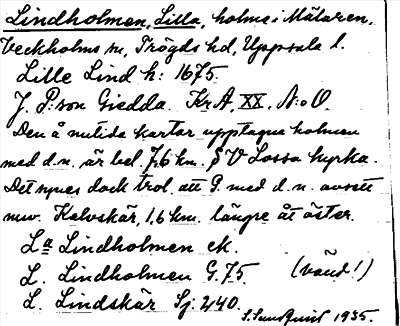 Lindholmen, Lilla, holme i Mälaren,
Veckholms sn, Trögds hd, Uppsala l.
Lille Lindh: 1675.
J. P:son Giedda. Kr A, XX. N:o 0.
Den å nutida kartor upptagna holmen
med d. n. är bel. 7,6 km. V Lossa kyrka.
Det synes dock trol. att G. med d. n. avsett
nuv. Kalvskär, 1,6 km. längre åt öster.
La Lindholmen ek.
L. Lindholmen G. 75. (vänd!)
L. Lindskär Sj. 240.
1935.